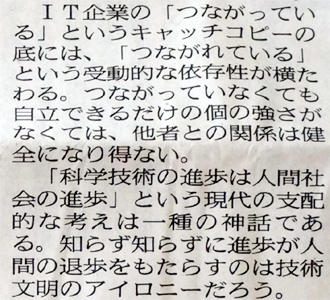 ＩＴ企業の「つながってい
る」というキャッチコピーの
底には、「つながれている」
という受動的な依存性が横た
わる。つながっていなくても
自立できるだけの個の強さが
なくては、他者との関係は健
全になり得ない。
「科学技術の進歩は人間社
会の進歩」という現代の支配
的な考えは一種の神話であ
る。知らず知らずに進歩が人
間の退歩をもたらすのは技術
文明のアイロニーだろう。